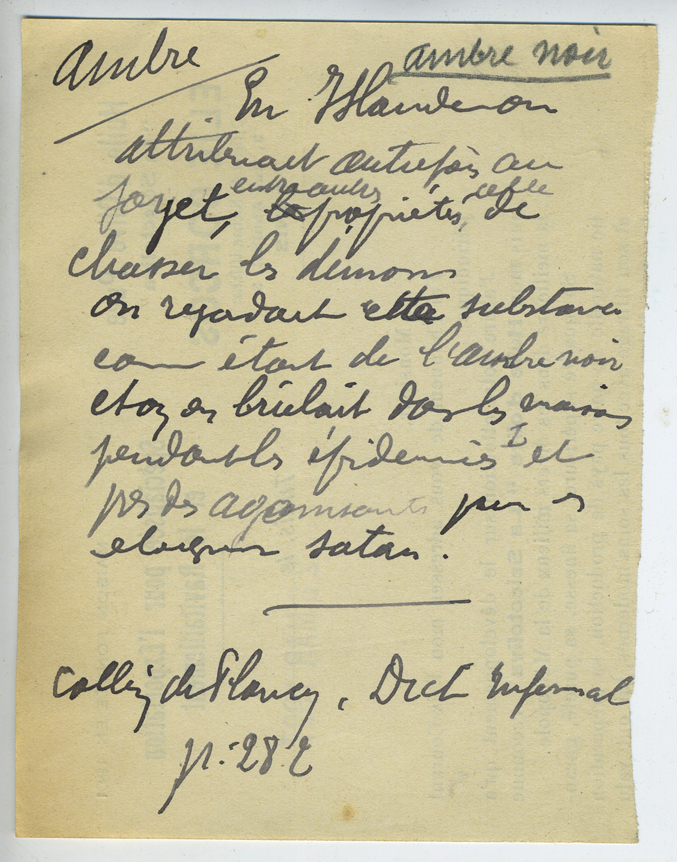 ambre
ambre noir
En Islande on
attribuait autrefois au
jayet, entr'autres propriétés, celle de
chasser les démons
on regardait cette substance
comm étant de l'ambre noir
et on en brûlait dans les maisons
pendant les épidémies et
près des agonisants pour en
éloigner satan.
Collin de Plancy, Dict Infernal
p. 282